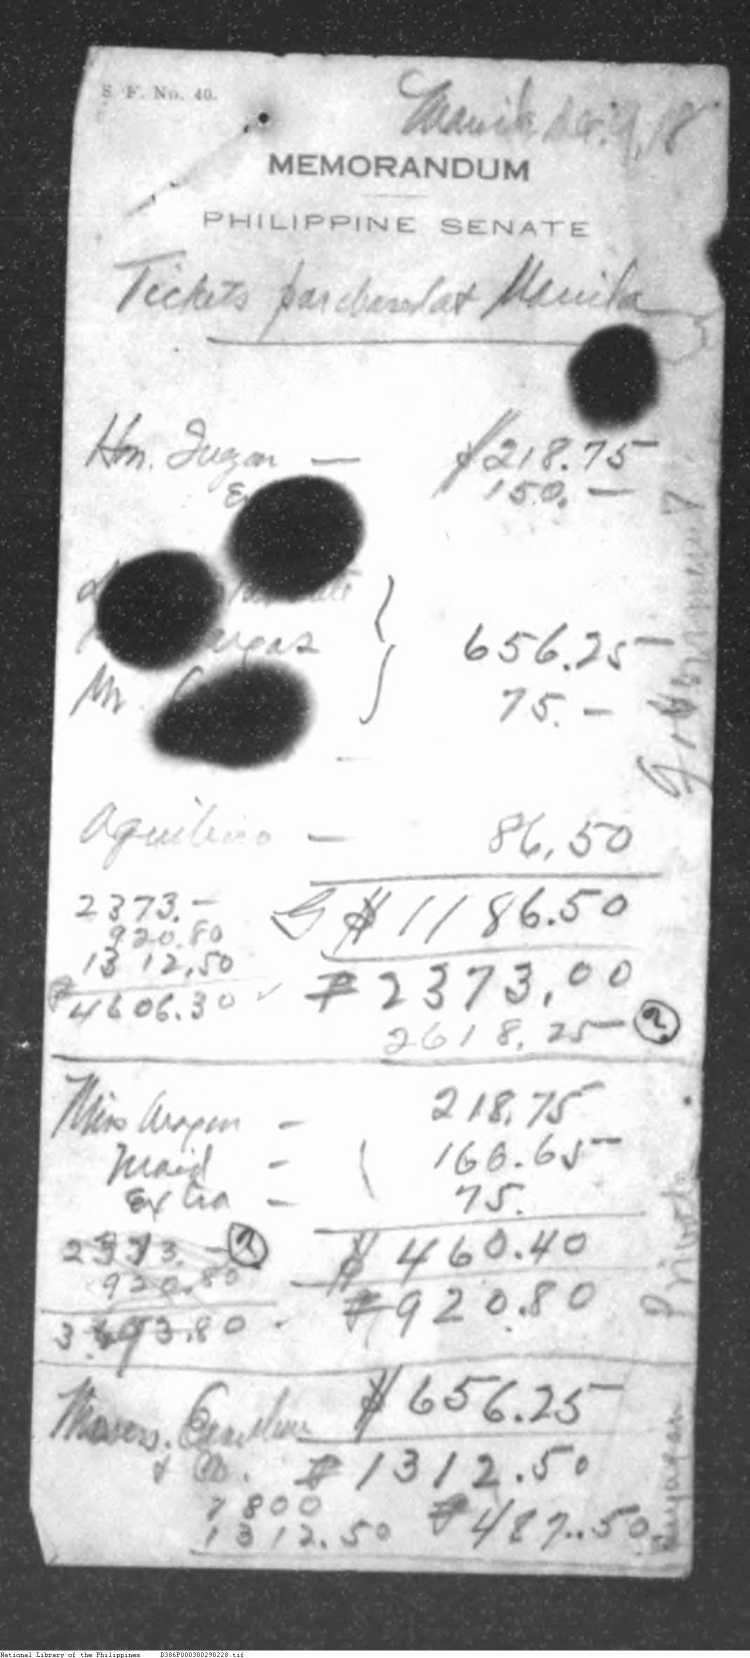 S. F. No. 40.
Manila Dec. 9, 18
MEMORANDUM
PHILIPPINE SENATE
Tickets purchased at Manila
Hon. — $218.75
150. —
656.25
Mr. 75. —
Aquilino — 86.50
2373.— $ 1186.50
920.80
1312.50 ₱2373.00
₱4606.30
2618.25 (2)
Government
Miss Aragon — 218.75
Maid — 166.65
Extra — 75.
2373.— (2) $ 460.40
920.80 ₱920.80
3293.80
Private
Messrs. $656.25
& Co. ₱1312.50
1800 ₱487.50
1312.50
National Library of the Philippines D386P000300290228.tif